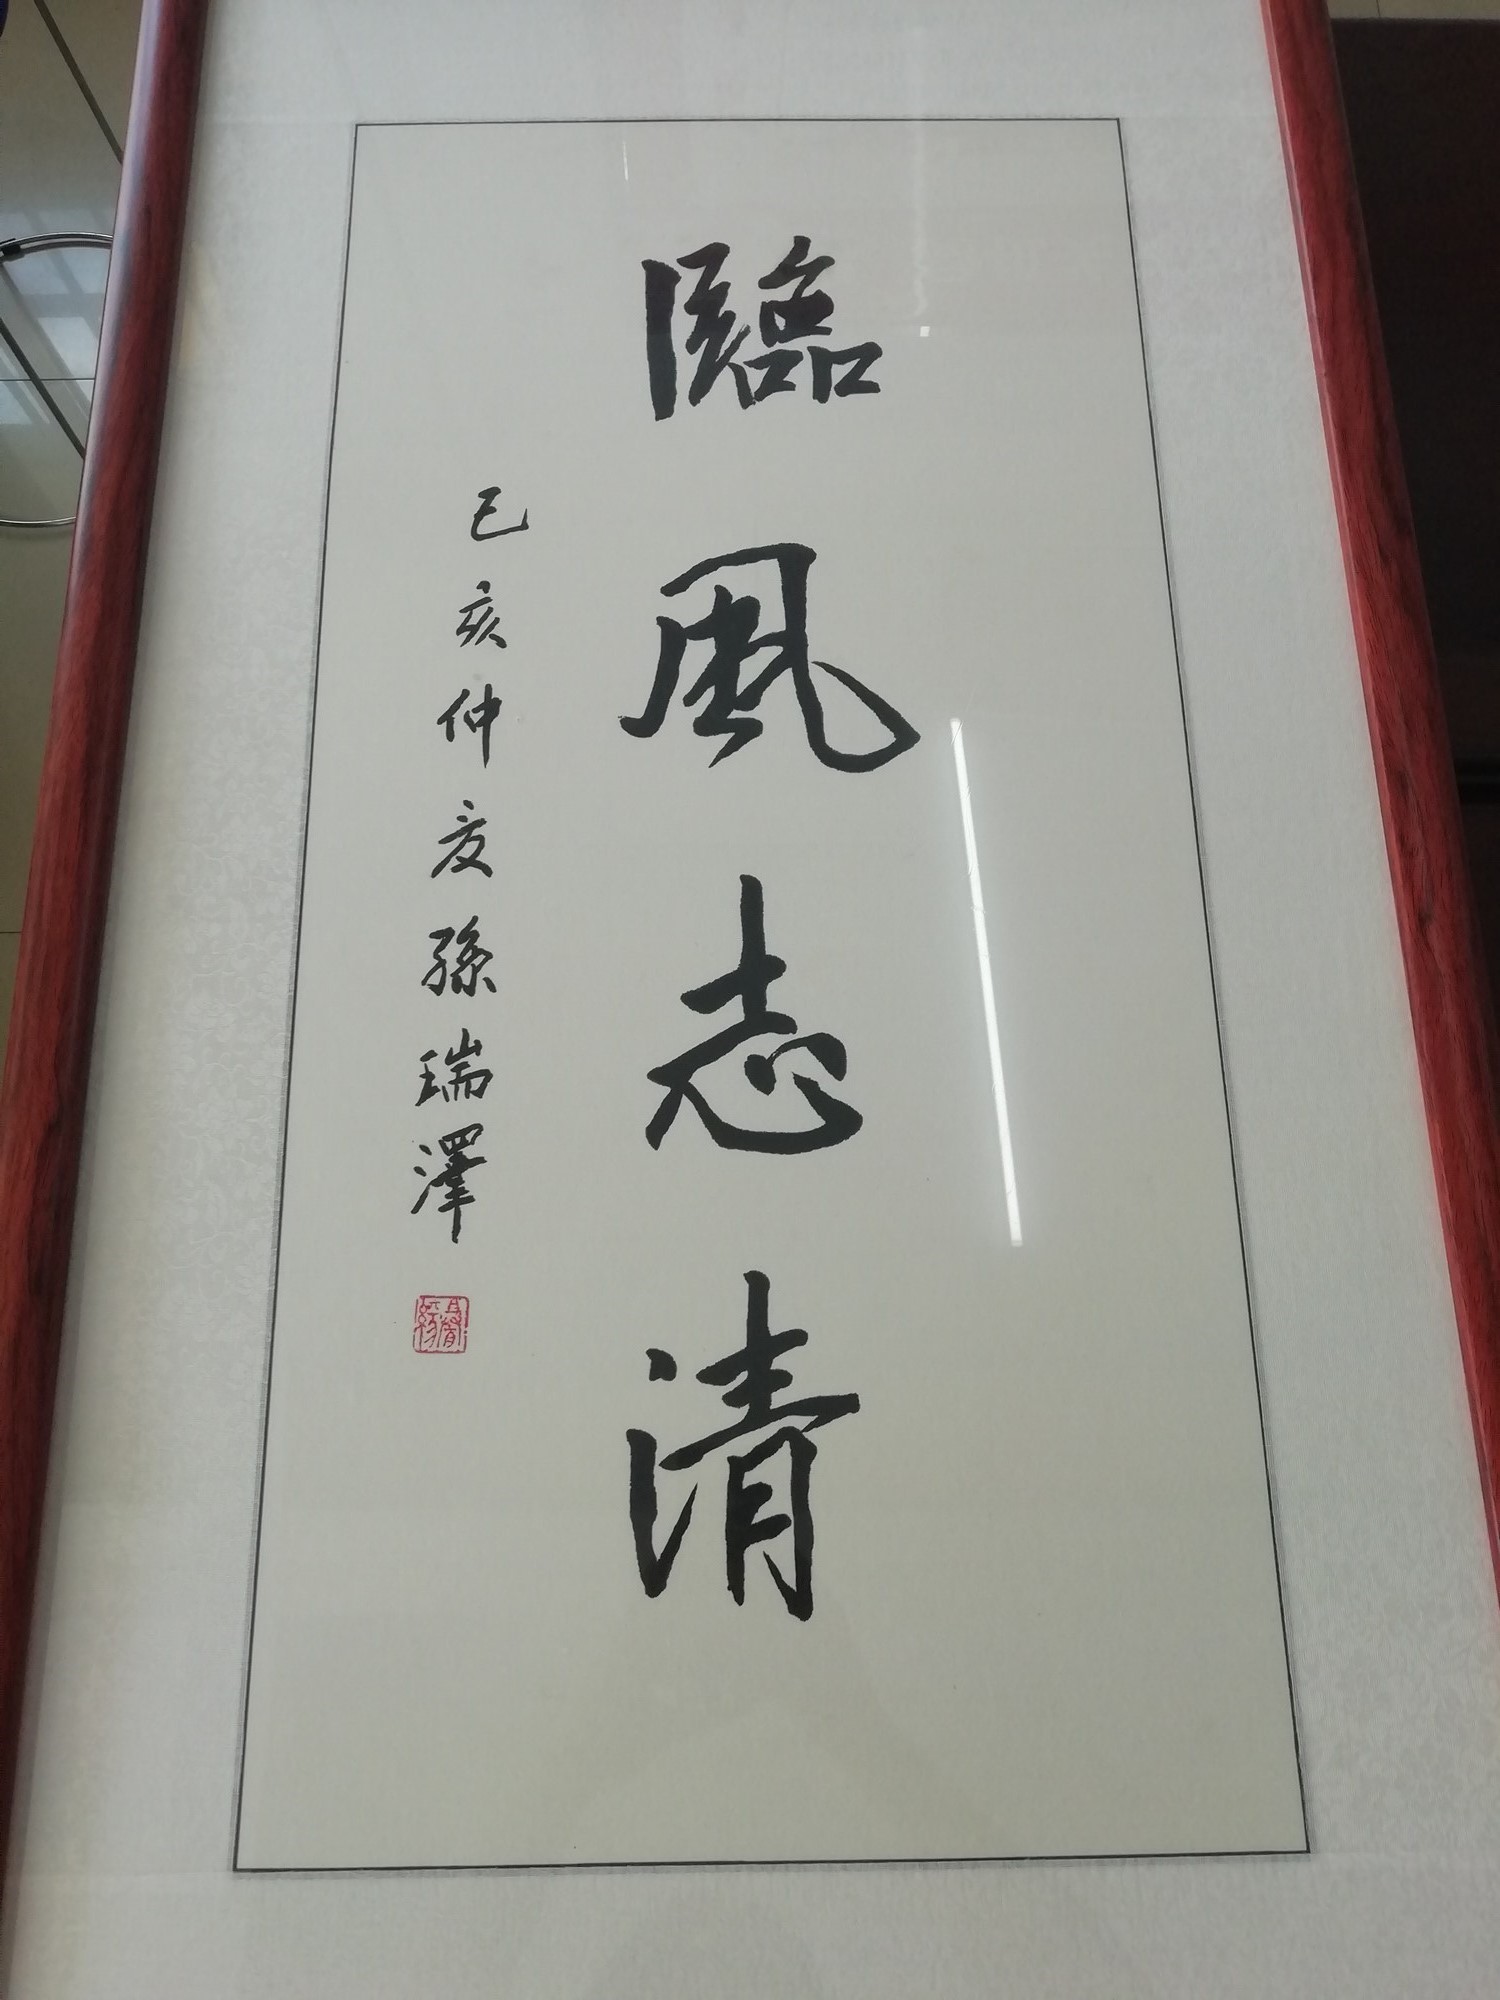 臨風志清
己亥仲夏孫瑞澤